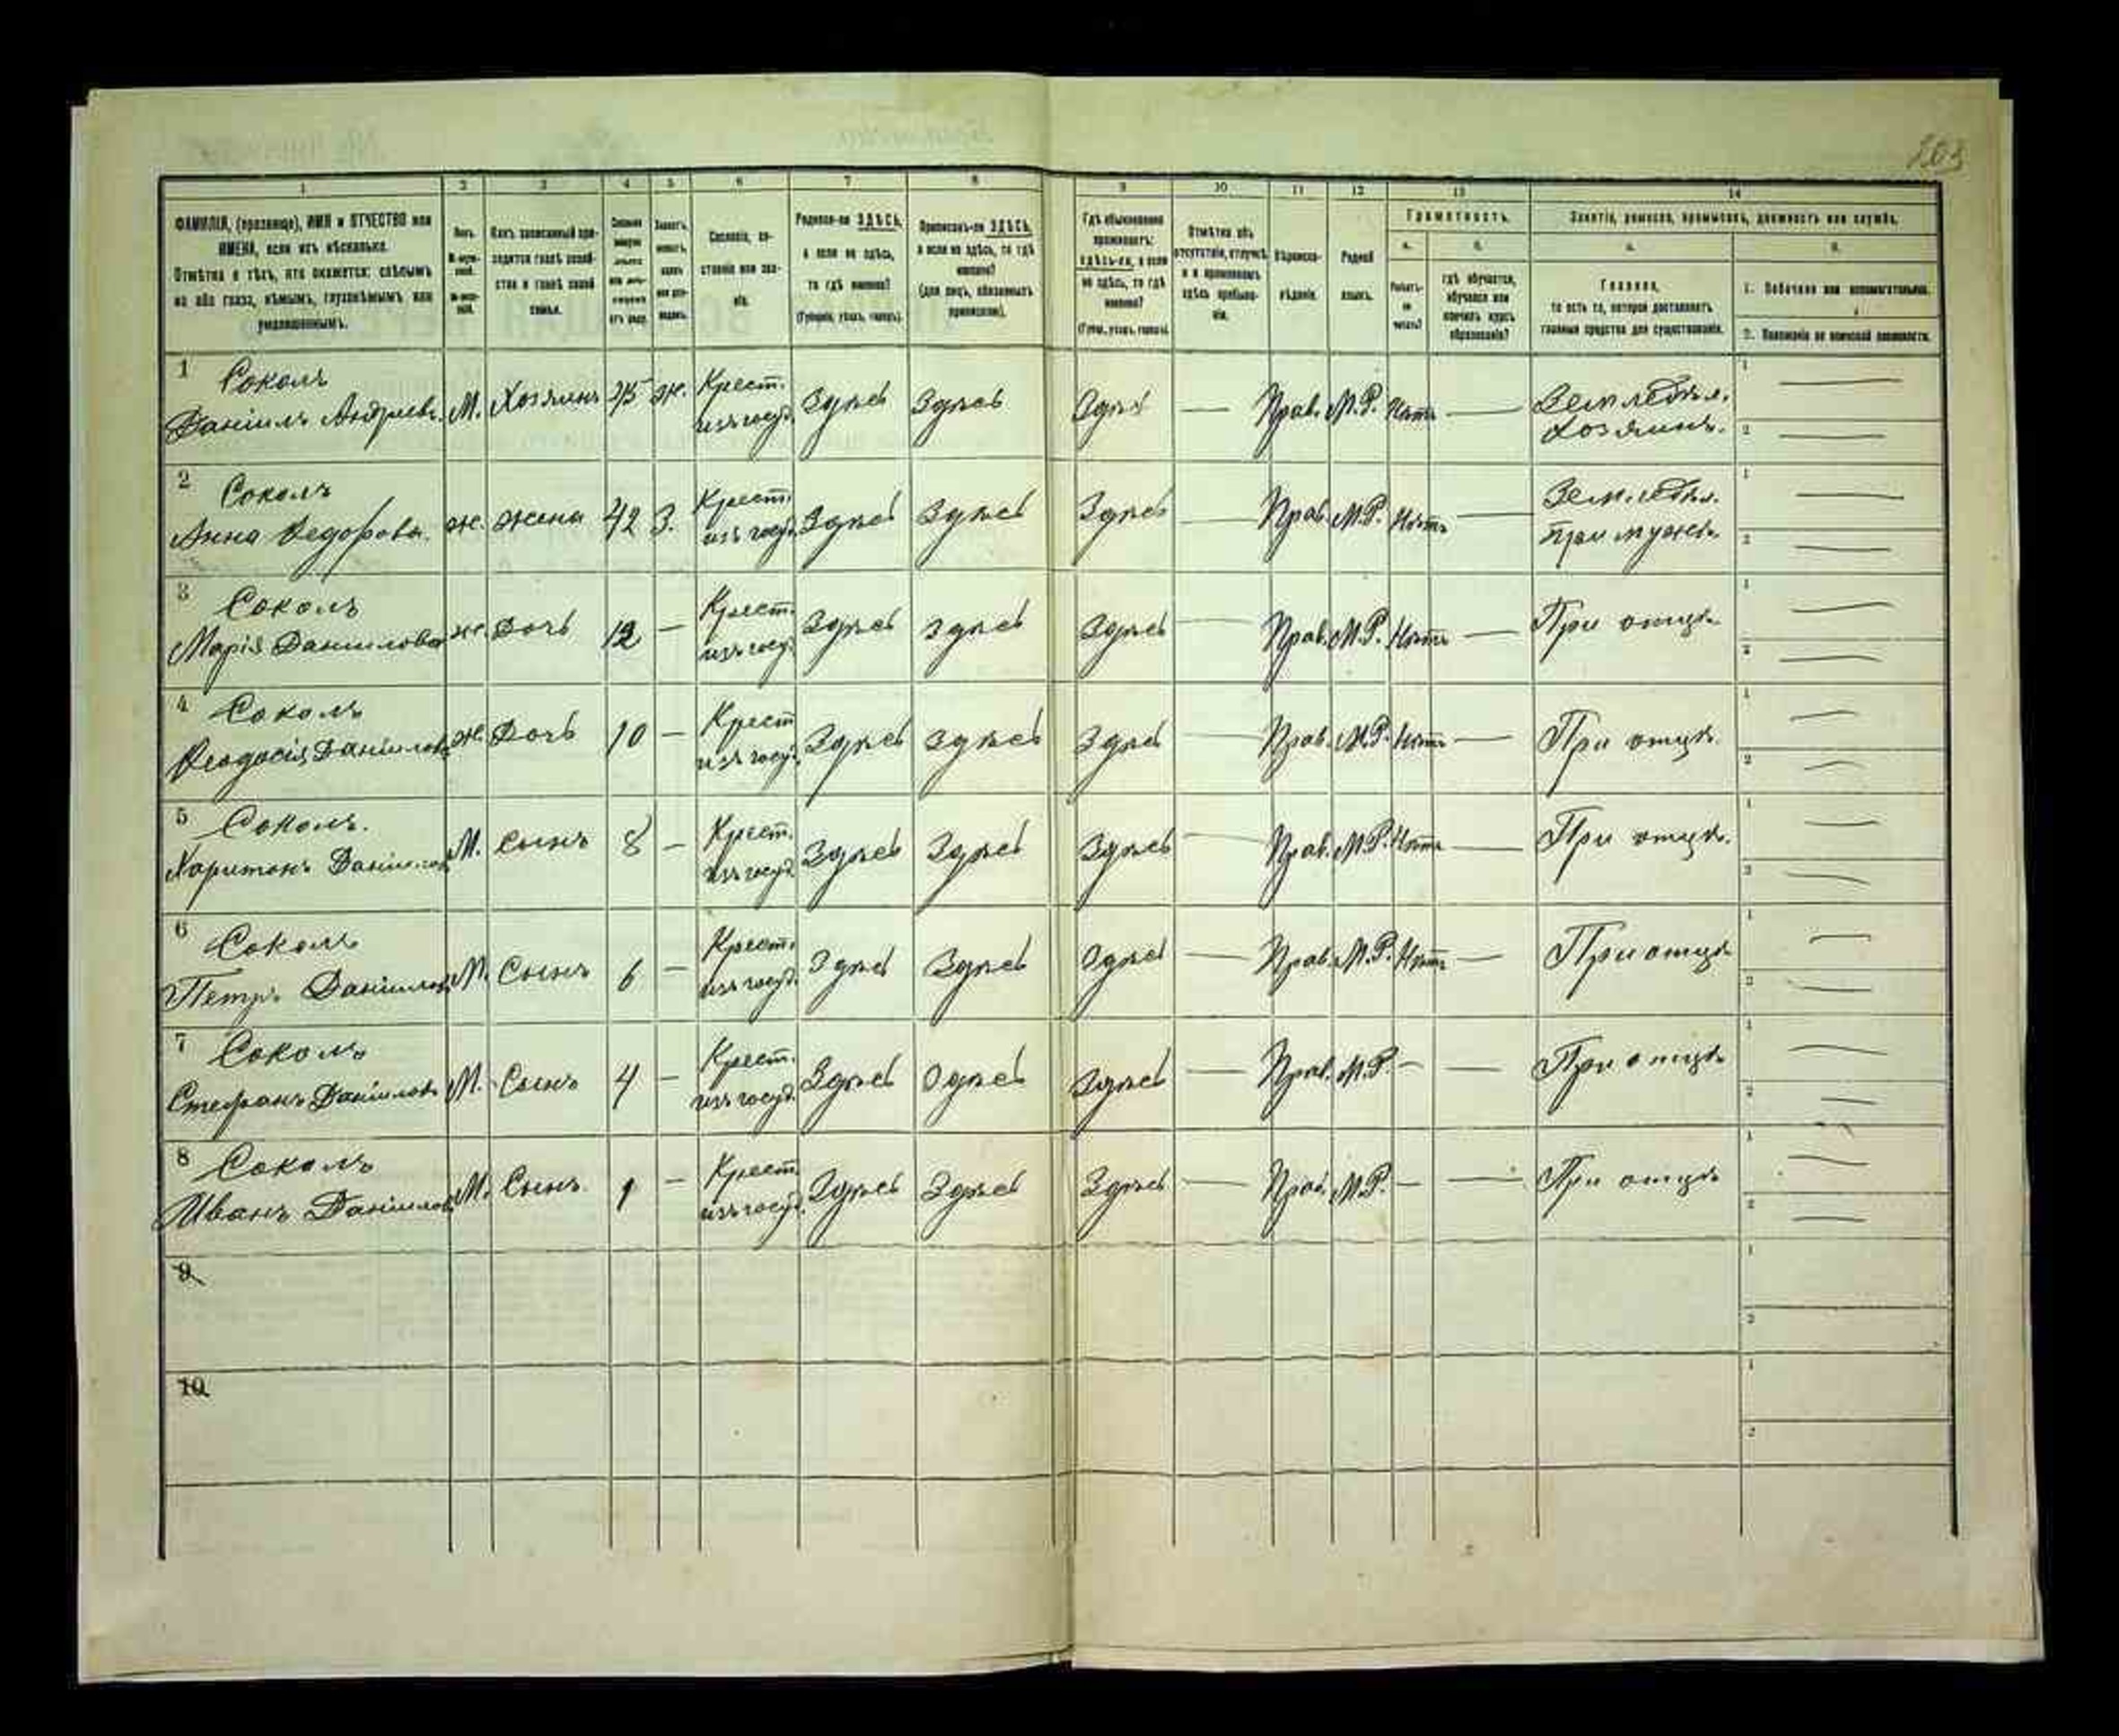 203
1 2 3 4 5 6 7 8 9 10 11 12 13 14
ФАМИЛІЯ, (прозвище), ИМЯ и ОТЧЕСТВО или
ИМЕНА, если ихъ нѣсколько.
Отмѣтка о тѣхъ, кто окажется: слѣпымъ
на оба глаза, нѣмымъ, глухонѣмымъ или
умалишеннымъ.
Полъ.
М-муж-
ской.
Ж-жен-
скій.
Какъ записанный при-
ходится главѣ хозяй-
ства и главѣ своей
семьи.
Сколько
минуло
лѣтъ
или мѣ-
сяцевъ
отъ роду.
Холостъ,
женатъ,
вдовъ
или раз-
веденъ.
Сословіе, со-
стояніе или зва-
ніе.
Родился-ли ЗДѢСЬ,
а если не здѣсь,
то гдѣ именно?
(Губернія, уѣздъ, городъ).
Приписанъ-ли ЗДѢСЬ,
а если не здѣсь, то гдѣ
именно?
(для лицъ, обязанныхъ
припискою).
Гдѣ обыкновенно
проживаетъ:
здѣсь-ли, а если
не здѣсь, то гдѣ
именно?
(Губер., уѣздъ, городъ).
Отмѣтка объ
отсутствіи, отлучкѣ
и о временномъ
здѣсь пребыва-
ніи.
Вѣроиспо-
вѣданіе.
Родной
языкъ.
Грамотность.
а.
Умѣетъ-
ли
читать?
б.
гдѣ обучается,
обучался или
кончилъ курсъ
образованія?
Занятіе, ремесло, промыселъ, должность или служба.
а.
Главное,
то есть то, которое доставляетъ
главныя средства для существованія.
б.
1. Побочное или вспомогательное.
2. Положеніе по воинской повинности.
1 Соколъ Крест. Земледѣл.
Даніилъ Андреевъ М. Хозяинъ ж. изъ госуд. Здѣсь Здѣсь Здѣсь — Прав. М.Р. Нѣтъ — хозяинъ.
2 Соколъ Крест. Земледѣл.
Анна Ѳедорова. ж. жена 42 З. изъ госуд. Здѣсь Здѣсь Здѣсь — Прав. М.Р. Нѣтъ — при мужѣ.
3 Соколъ Крест.
Марія Даніилова ж. Дочь 12 — изъ госуд. Здѣсь Здѣсь Здѣсь — Прав. М.Р. Нѣтъ — При отцѣ.
4 Соколъ Крест
Ѳеодосія Даніилов. ж. Дочь 10 — изъ госуд. Здѣсь Здѣсь Здѣсь — Прав. М.Р. Нѣтъ — При отцѣ.
5 Соколъ. Крест.
Харитонъ Даніилов М. Сынъ 8 — изъ госуд. Здѣсь Здѣсь Здѣсь — Прав. М.Р. Нѣтъ — При отцѣ.
6 Соколъ Крест.
Петръ Даніилов М. Сынъ 6 — изъ госуд. Здѣсь Здѣсь Здѣсь — Прав. М.Р. Нѣтъ — При отцѣ
7 Соколъ Крест.
Стефанъ Даніиловъ М. Сынъ 4 — изъ госуд. Здѣсь Здѣсь Здѣсь — Прав. М.Р. — — При отцѣ
8 Соколъ Крест.
Иванъ Даніилов М. Сынъ 1 — изъ госуд. Здѣсь Здѣсь Здѣсь — Прав. М.Р. — — При отцѣ
9
10